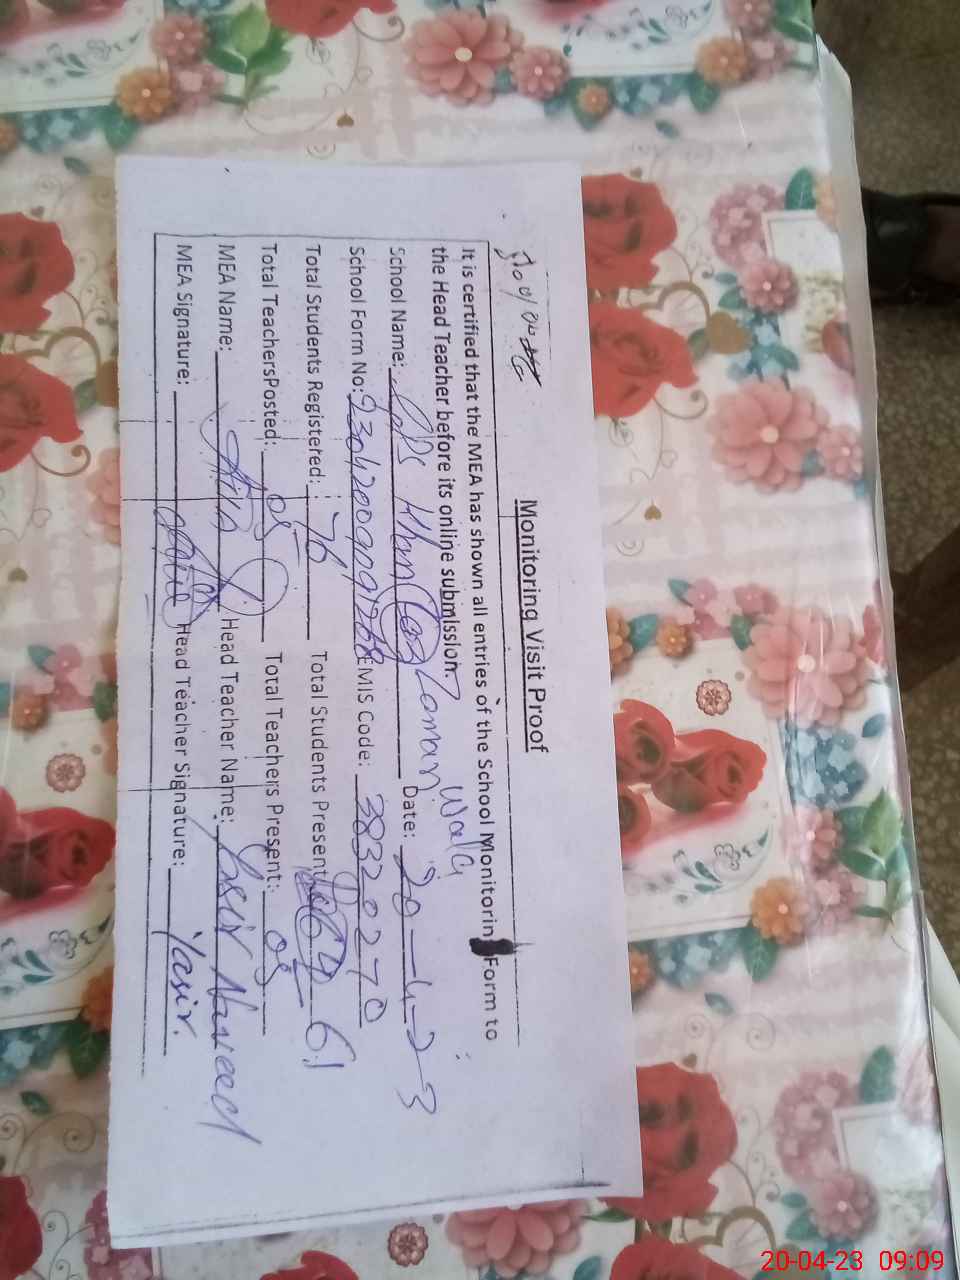 Monitoring Visit Proof
It is certified that the MEA has shown all entries of the School Monitorin Form to
the Head Teacher before its online submission.
School Name: GPS Zaman Wala Date: 20-4-23
School Form No: EMIS Code: 38320270
Total Students Registered: 76 Total Students Present 61
Total TeachersPosted: 05 Total Teachers Present: 05
MEA Name: Head Teacher Name: Yasir Naveed
MEA Signature: Head Teacher Signature: Yasir.
20-04-23 09:09